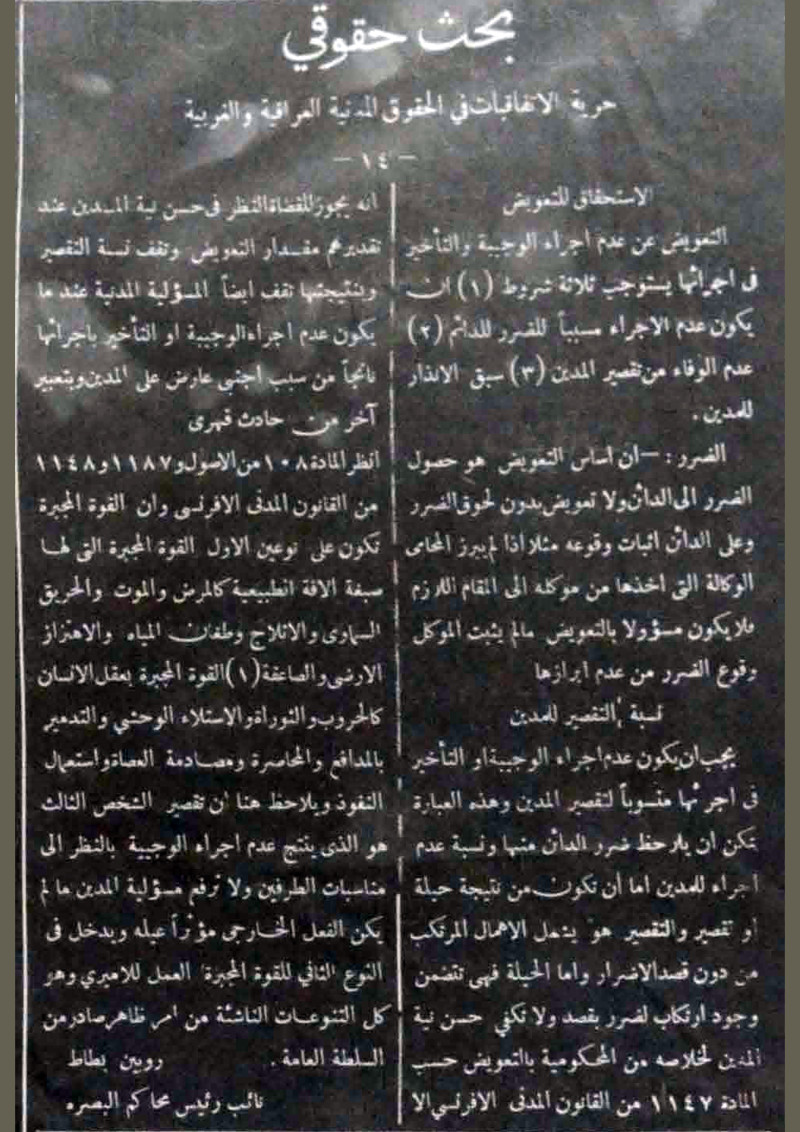 بحث حقوقي
حرية الاتفاقيات في الحقوق المدنية العراقية والغربية
— ١٤ —
الاستحقاق للتعويض
التعويض عن عدم اجراء الوجيبة والتأخير
في اجرائها يستوجب ثلاثة شروط (١) ان
يكون عدم الاجراء مسبباً للضرر للدائم (٢)
عدم الوفاء من تقصير المدين (٣) سبق الانذار
للمدين .
الضرر : — ان اساس التعويض هو حصول
الضرر الى الدائن ولا تعويض بدون لحوق الضرر
وعلى الدائن اثبات وقوعه مثلا اذا لم يبرز المحامي
الوكالة التي اخذها من موكله الى المقام اللازم
فلا يكون مسؤولا بالتعويض مالم يثبت الموكل
وقوع الضرر من عدم ابرازها
نسبة التقصير للمدين
يجب ان يكون عدم اجراء الوجيبة او التأخير
في اجرئها منسوباً لتقصير المدين وهذه العبارة
يمكن ان يلاحظ ضرر الدائن منها ونسبة عدم
اجراء للمدين اما أن تكون من نتيجة حيلة
او تقصير والتقصير هو يشمل الاهمال المرتكب
من دون قصد الاضرار واما الحيلة فهي تتضمن
وجود ارتكاب لضرر بقصد ولا تكفي حسن نية
المدين لخلاصه من المحكومية بالتعويض حسب
المادة ١١٤٧ من القانون المدني الافرنسي الا
انه يجوز للقضاة النظر في حسن نية المدين عند
تقديرهم مقدار التعويض وتقف نسبة التقصير
وبنتيجتها تقف ايضاً المسؤلية المدنية عند ما
يكون عدم اجراء الوجيبة او التأخير باجرائها
ناتجاً من سبب اجنبي عارض على المدين وبتعبير
آخر من حادث قهري
انظر المادة ١٠٨ من الاصول و ١١٨٧ و ١١٤٨
من القانون المدني الافرنسي وان القوة المجبرة
تكون على نوعين الاول القوة المجبرة التي لها
صبغة الافة انطبيعية كالمرض والموت والحريق
السماوي والاثلاج وطغان المياه والاهتزاز
الارضي والصاعقة (١) القوة المجبرة بعقل الانسان
كالحروب والثوراة والاستلاء الوحشي والتدمير
بالمدافع والمحاصرة ومصادمة العصاة واستعمال
النفوذ ويلاحظ هنا ان تقصير الشخص الثالث
هو الذي ينتج عدم اجراء الوجيبة بالنظر الى
مناسبات الطرفين ولا ترفع مسؤلية المدين ما لم
يكن الفعل الخارجي مؤثراً عيله ويدخل في
النوع الثاني للقوة المجبرة العمل للاميري وهو
كل التنوعات الناشئة من امر ظاهر صادر من
السلطة العامة . روبين بطاط
نائب رئيس محاكم البصره